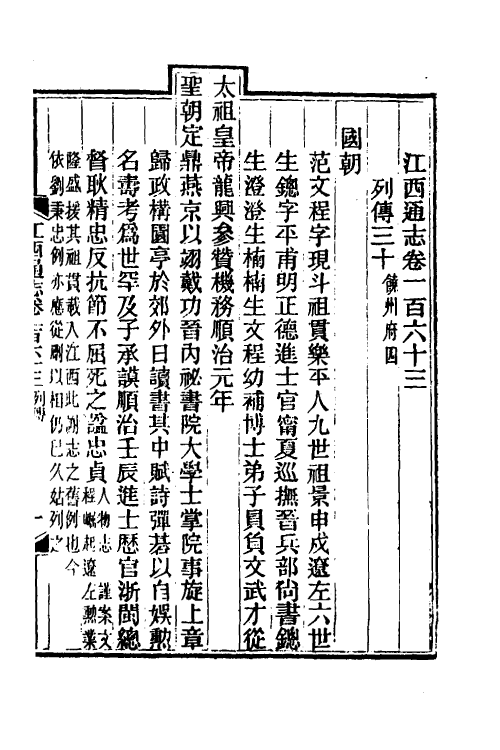 江西通志卷一百六十三
列傳三十 饒州府四
國朝
范文程字現斗祖貫樂平人九世祖景申戍遼左六世
生鏓字平甫明正德進士官甯夏巡撫晉兵部尚書鏓
生澄澄生楠楠生文程幼補博士弟子員負文武才從
太祖皇帝龍興參贊機務順治元年
聖朝定鼎燕京以翊戴功晉內祕書院大學士掌院事旋上章
歸政構園亭於郊外日讀書其中賦詩彈碁以自娛勲
名壽考爲世罕及子承謨順治壬辰進士歷官浙閩總
督耿精忠反抗節不屈死之謚忠貞 人物志 謹案文
程崛起遼左勲業
隆盛援其祖貫載入江西此謝志之舊例也今
依劉秉忠例亦應從刪以相仍已久姑列之
江西通志卷一百六十三 列傳 一